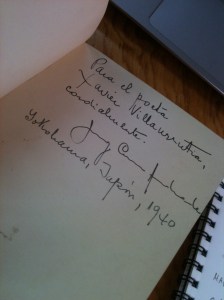 Para el poeta
Xavier Villaurrutia,
cordialmente.
Yokohama, Japón, 1940